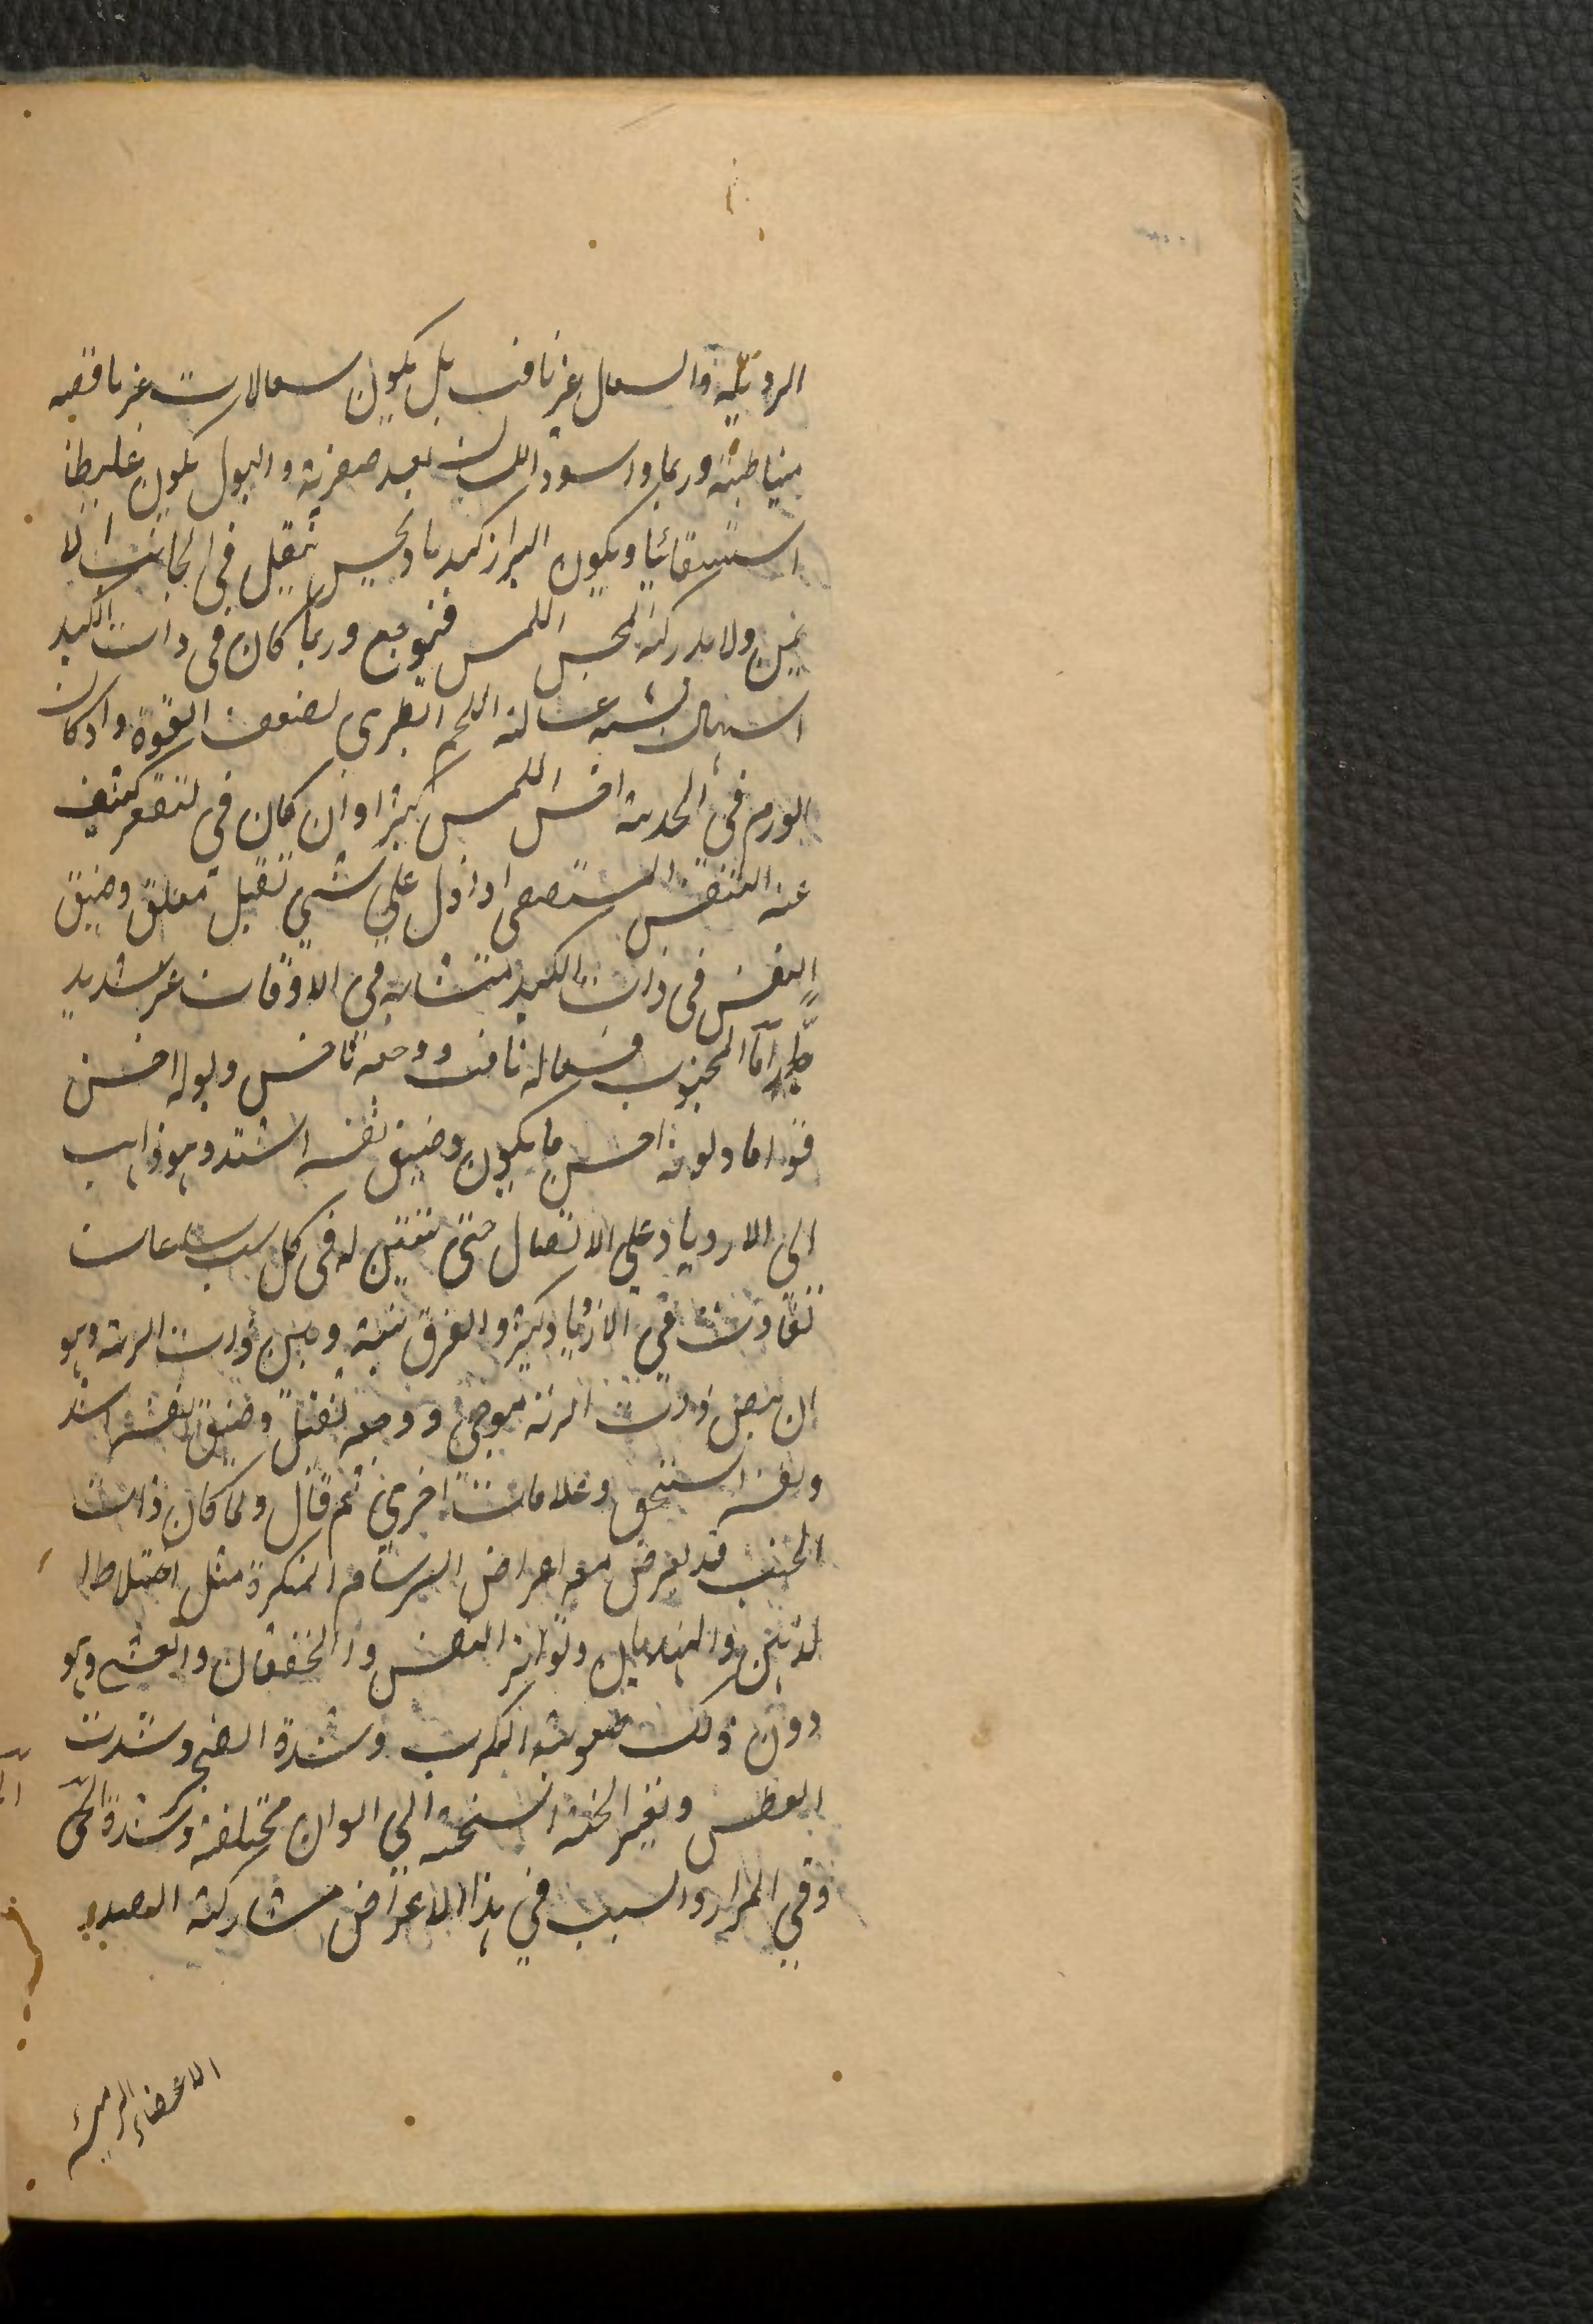 الرديّة والسعال غير نافث بل يكون سعالات غير نافثه
متباطئة وربما واسود اللسان بعد صفرته والبول يكون غليظا
استسقائيا ويكون البراز كبديا ويحس ثقيل في الجانب الا
يمن ولا يدركه المجس اللمس فيتوجع وربما كان في ذات الكبد
اسهال يشبه غسالة اللحم الطرى لضعف القوة واذ كان
الورم في الحدبة احس اللمس كثيرا وان كان في لتقعر كشف
عنه التنفس المستصعى اذ اول على شئ ثقيل معلق وضيق
النفس في ذات الكبد متشابه في الاوقات غير شديد
جدا اما المجنوب فسعاله نافث ووجعه ناخس وبوله احسن
قواما ولونه احسن ما يكون وضيق نفسه اشتد وهو ذاهب
الى الازدياد على الاتصال حتى يتبين له في كل ست ساعات
تفاوت في الازدياد كثير والفرق بينه وبين ذات الرئة وهو
ان نبض ذات الرئة موجى ووجعه ثقيل وضيق نفسه اشد
ونفسه اسخن وعلامات اخرى ثم قال ولما كان ذات
الجنب قد يعرض معه اعراض السرسام المنكرة مثل اختلاط ا
لذهن والهذيان وتواتر النفس والخفقان والغشى وهو
دون ذلك صعوبة الكرب وشدة الضجر وشدت
العطس وتغير الخنه السحنه الى الوان مختلفة وشدة الحمّى
وقي المرار والسبب في هذا الاعراض مشاركة الصدر
الاعضاء الرئيسة